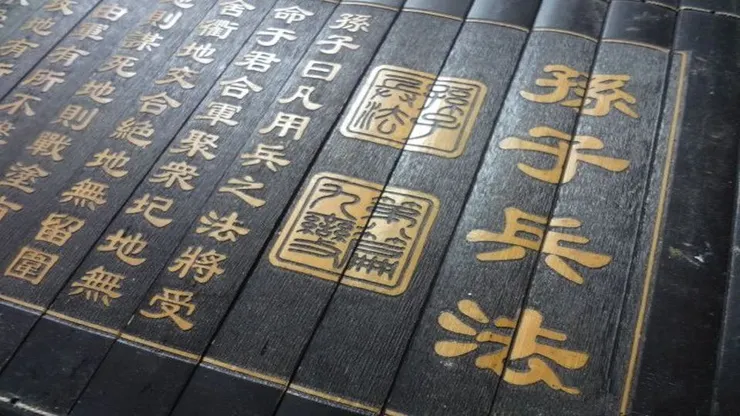 孫子兵法
孫子兵法
第八篇九變
孫子曰凡用兵之法將受
命于君合軍聚衆圮地無
舍衢地交合絶地無留圍
地則謀死地則戰塗有
由軍有所不
地有所